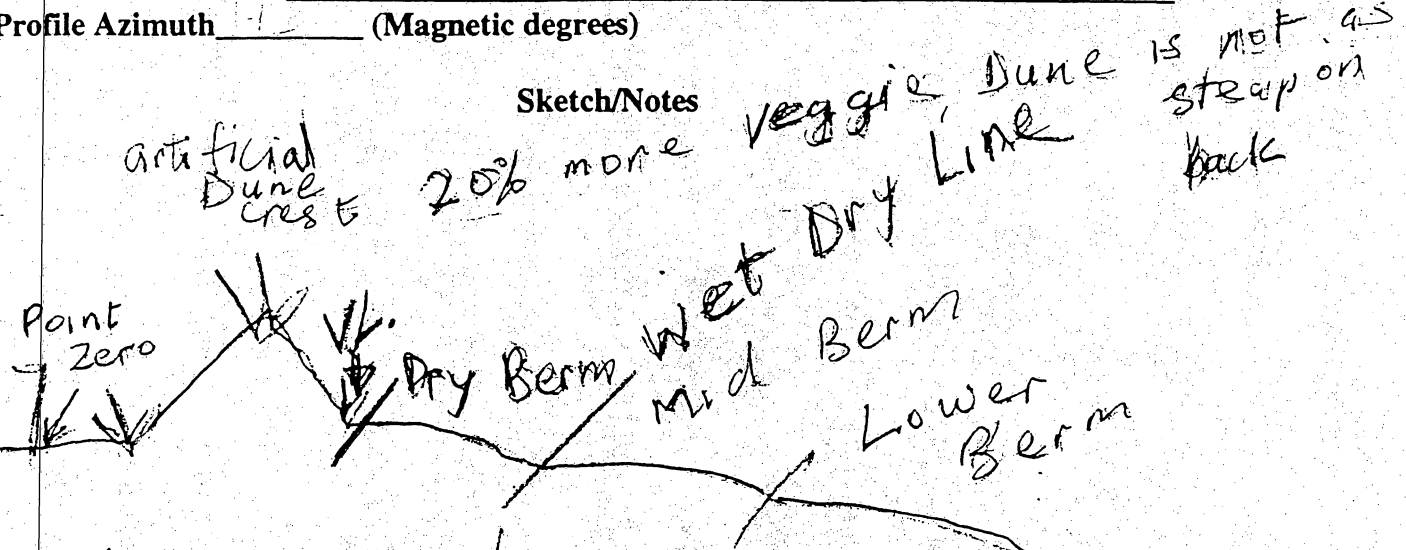 Profile Azimuth________ (Magnetic degrees)
Sketch/Notes
artificial
Dune
crest
20% more veggie, Dune is not as
steap on
back
Wet Dry Line
Point
Zero
VL.
Dry Berm
Mid Berm
Lower
Berm